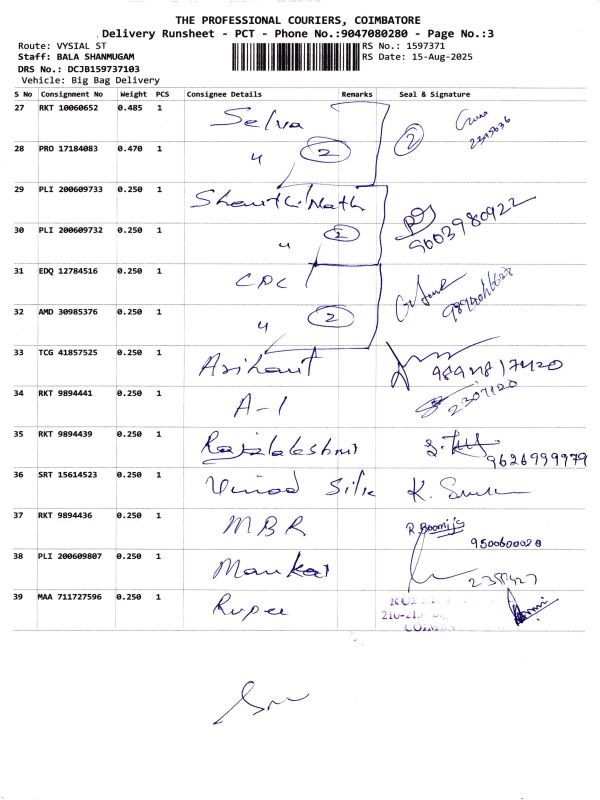 THE PROFESSIONAL COURIERS, COIMBATORE
Delivery Runsheet - PCT - Phone No.:9047080280 - Page No.:3
Route: VYSIAL ST RS No.: 1597371
Staff: BALA SHANMUGAM RS Date: 15-Aug-2025
DRS No.: DCJB159737103
Vehicle: Big Bag Delivery
S No Consignment No Weight PCS Consignee Details Remarks Seal & Signature
27 RKT 10060652 0.485 1 Selva 2
28 PRO 17184083 0.470 1 " 2
29 PLI 200609733 0.250 1
30 PLI 200609732 0.250 1 " 2 9003980922
31 EDQ 12784516 0.250 1 CDC
32 AMD 30985376 0.250 1 " 2
33 TCG 41857525 0.250 1 Arihant
34 RKT 9894441 0.250 1 A-1 2307120
35 RKT 9894439 0.250 1 Rajalakshmi 9626999979
36 SRT 15614523 0.250 1 Vinod Silk K.
37 RKT 9894436 0.250 1 MBR R.Boomijs 9500600020
38 PLI 200609807 0.250 1
39 MAA 711727596 0.250 1 Rupee